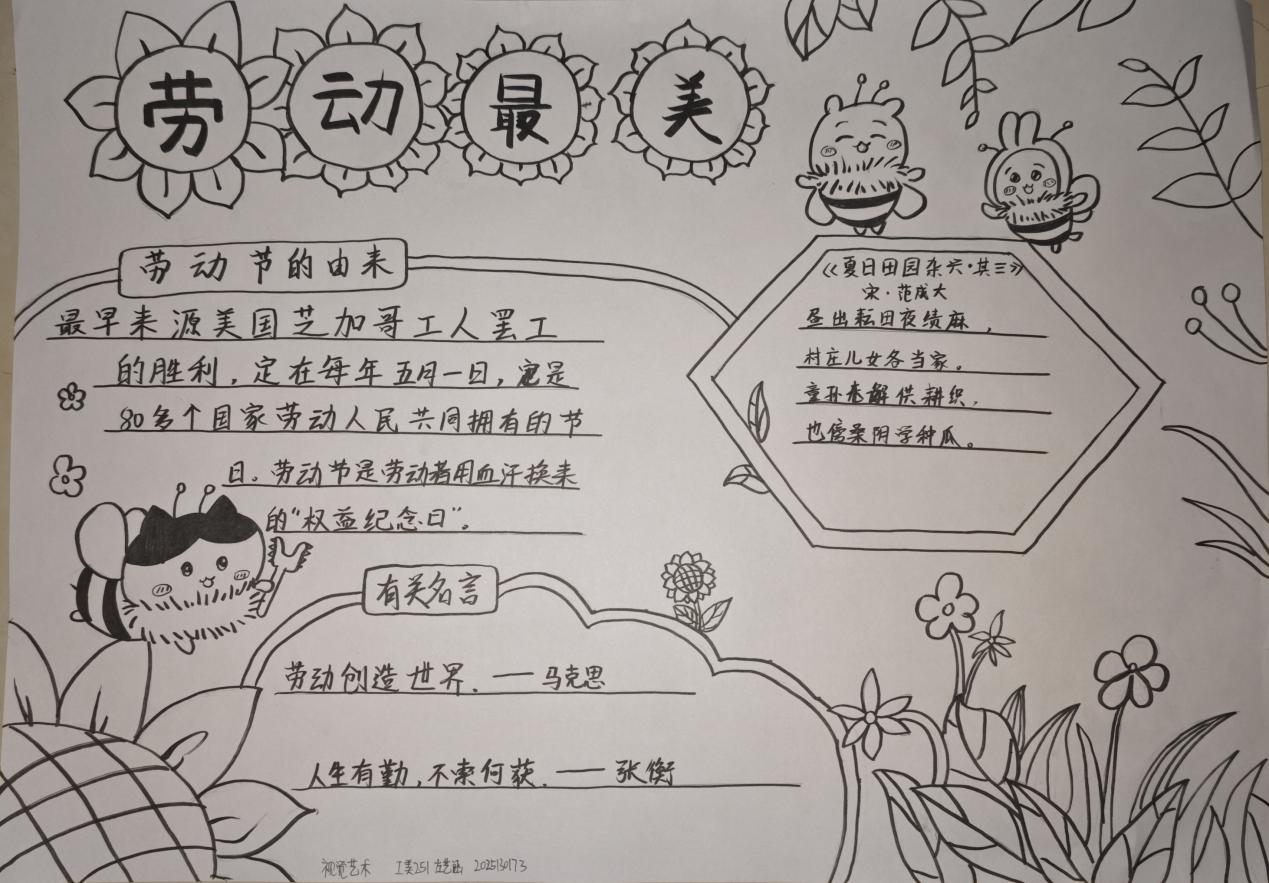 劳动最美
劳动节的由来
最早来源美国芝加哥工人罢工
的胜利，定在每年五月一日，是
80多个国家劳动人民共同拥有的节
日。劳动节是劳动者用血汗换来
的“权益纪念日”。
《夏日田园杂兴·其三》
宋·范成大
昼出耘田夜绩麻，
村庄儿女各当家。
童孙未解供耕织，
也傍桑阴学种瓜。
有关名言
劳动创造世界.——马克思
人生有勤，不索何获.——张衡
视觉艺术 工美251 2025130173